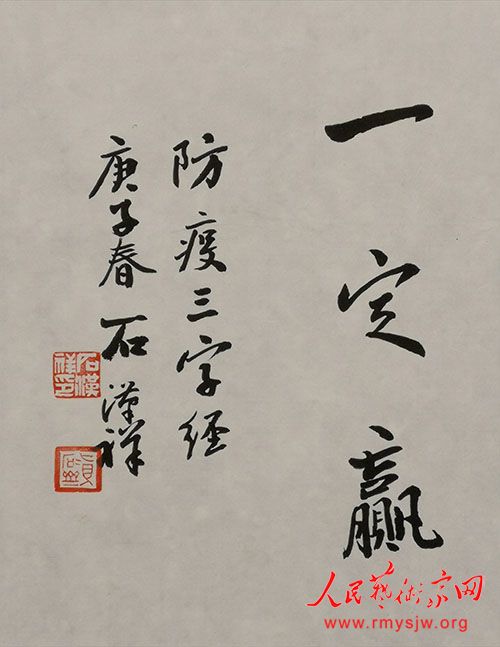 一定赢
防疫三字经
庚子春 石漢祥
石漢祥印
人民艺術家网
www.rmysjw.org